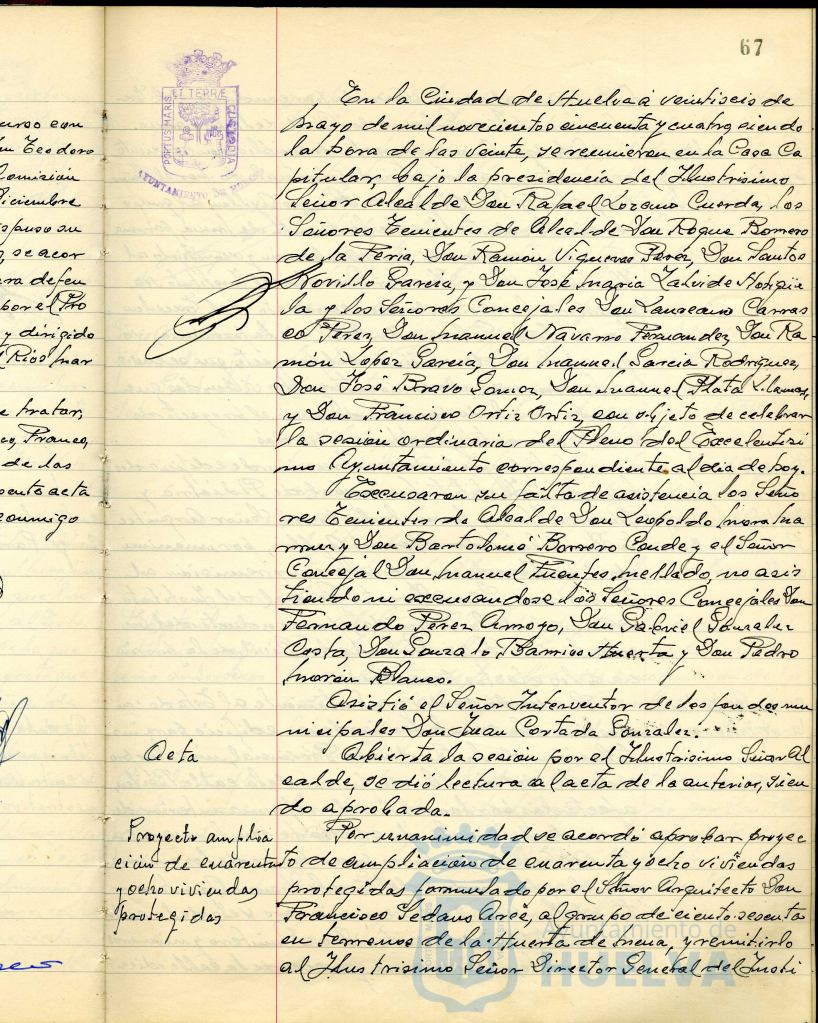 67
urso con
n Teodoro
omisión
iciembre
ispuso su
, se acor
ra defen
por el Pro
y dirigido
l Rios Mar
e tratar,
co, Franco,
de los
sento acta
conmigo
PORTUS MARIS ET TERRÆ CUSTODIA
AYUNTAMIENTO DE
En la Ciudad de Huelva a veintiseis de
mayo de mil novecientos cincuenta y cuatro, siendo
la hora de las veinte, se reunieron en la Casa Ca
pitular, bajo la presidencia del Ilustrisimo
Señor Alcalde Don Rafael Lozano Cuerda, los
Señores Tenientes de Alcalde Don Roque Borrero
de la Feria, Don Ramón Vigueras Perez, Don Santos
Novillo Garcia, y Don José Maria Zalvide
la y los Señores Concejales Don Laureano Carras
co Perez, Don Manuel Navarro Fernandez, Don Ra
món Lopez García, Don Manuel Garcia Rodriguez,
Don José Bravo Gomez, Don Manuel Plata Llamas,
y Don Francisco Ortiz Ortiz, con objeto de celebrar
la sesión ordinaria del Pleno del Excelentisi
mo Ayuntamiento correspondiente al dia de hoy.
Excusaron su falta de asistencia los Seño
res Tenientes de Alcalde Don Leopoldo Mora Ma
y Don Bartolomé Borrero Conde y el Señor
Concejal Don Manuel Fuentes Mellado, no asis
tiendo ni excusandose los Señores Concejales Don
Fernando Perez Arroyo, Don Gabriel Gonzalez
Costa, Don Gonzalo Barrios Huerta y Don Pedro
Morón Blanco.
Asistió el Señor Interventor de los fondos mu
nicipales Don Juan Cortada Gonzalez.
Acta
Abierta la sesión por el Ilustrisimo Señor Al
calde, se dió lectura al acta de la anterior, sien
do aprobada.
Proyecto amplia
ción de cuarenta
y ocho viviendas
protegidas
Por unanimidad se acordó aprobar proyec
to de ampliación de cuarenta y ocho viviendas
protegidas formulado por el Señor Arquitecto Don
Francisco Sedano Arce, al grupo de ciento sesenta
en terrenos de la Huerta de Mena, y remitirlo
al Ilustrisimo Señor Director General del Insti
Ayuntamiento de
HUELVA